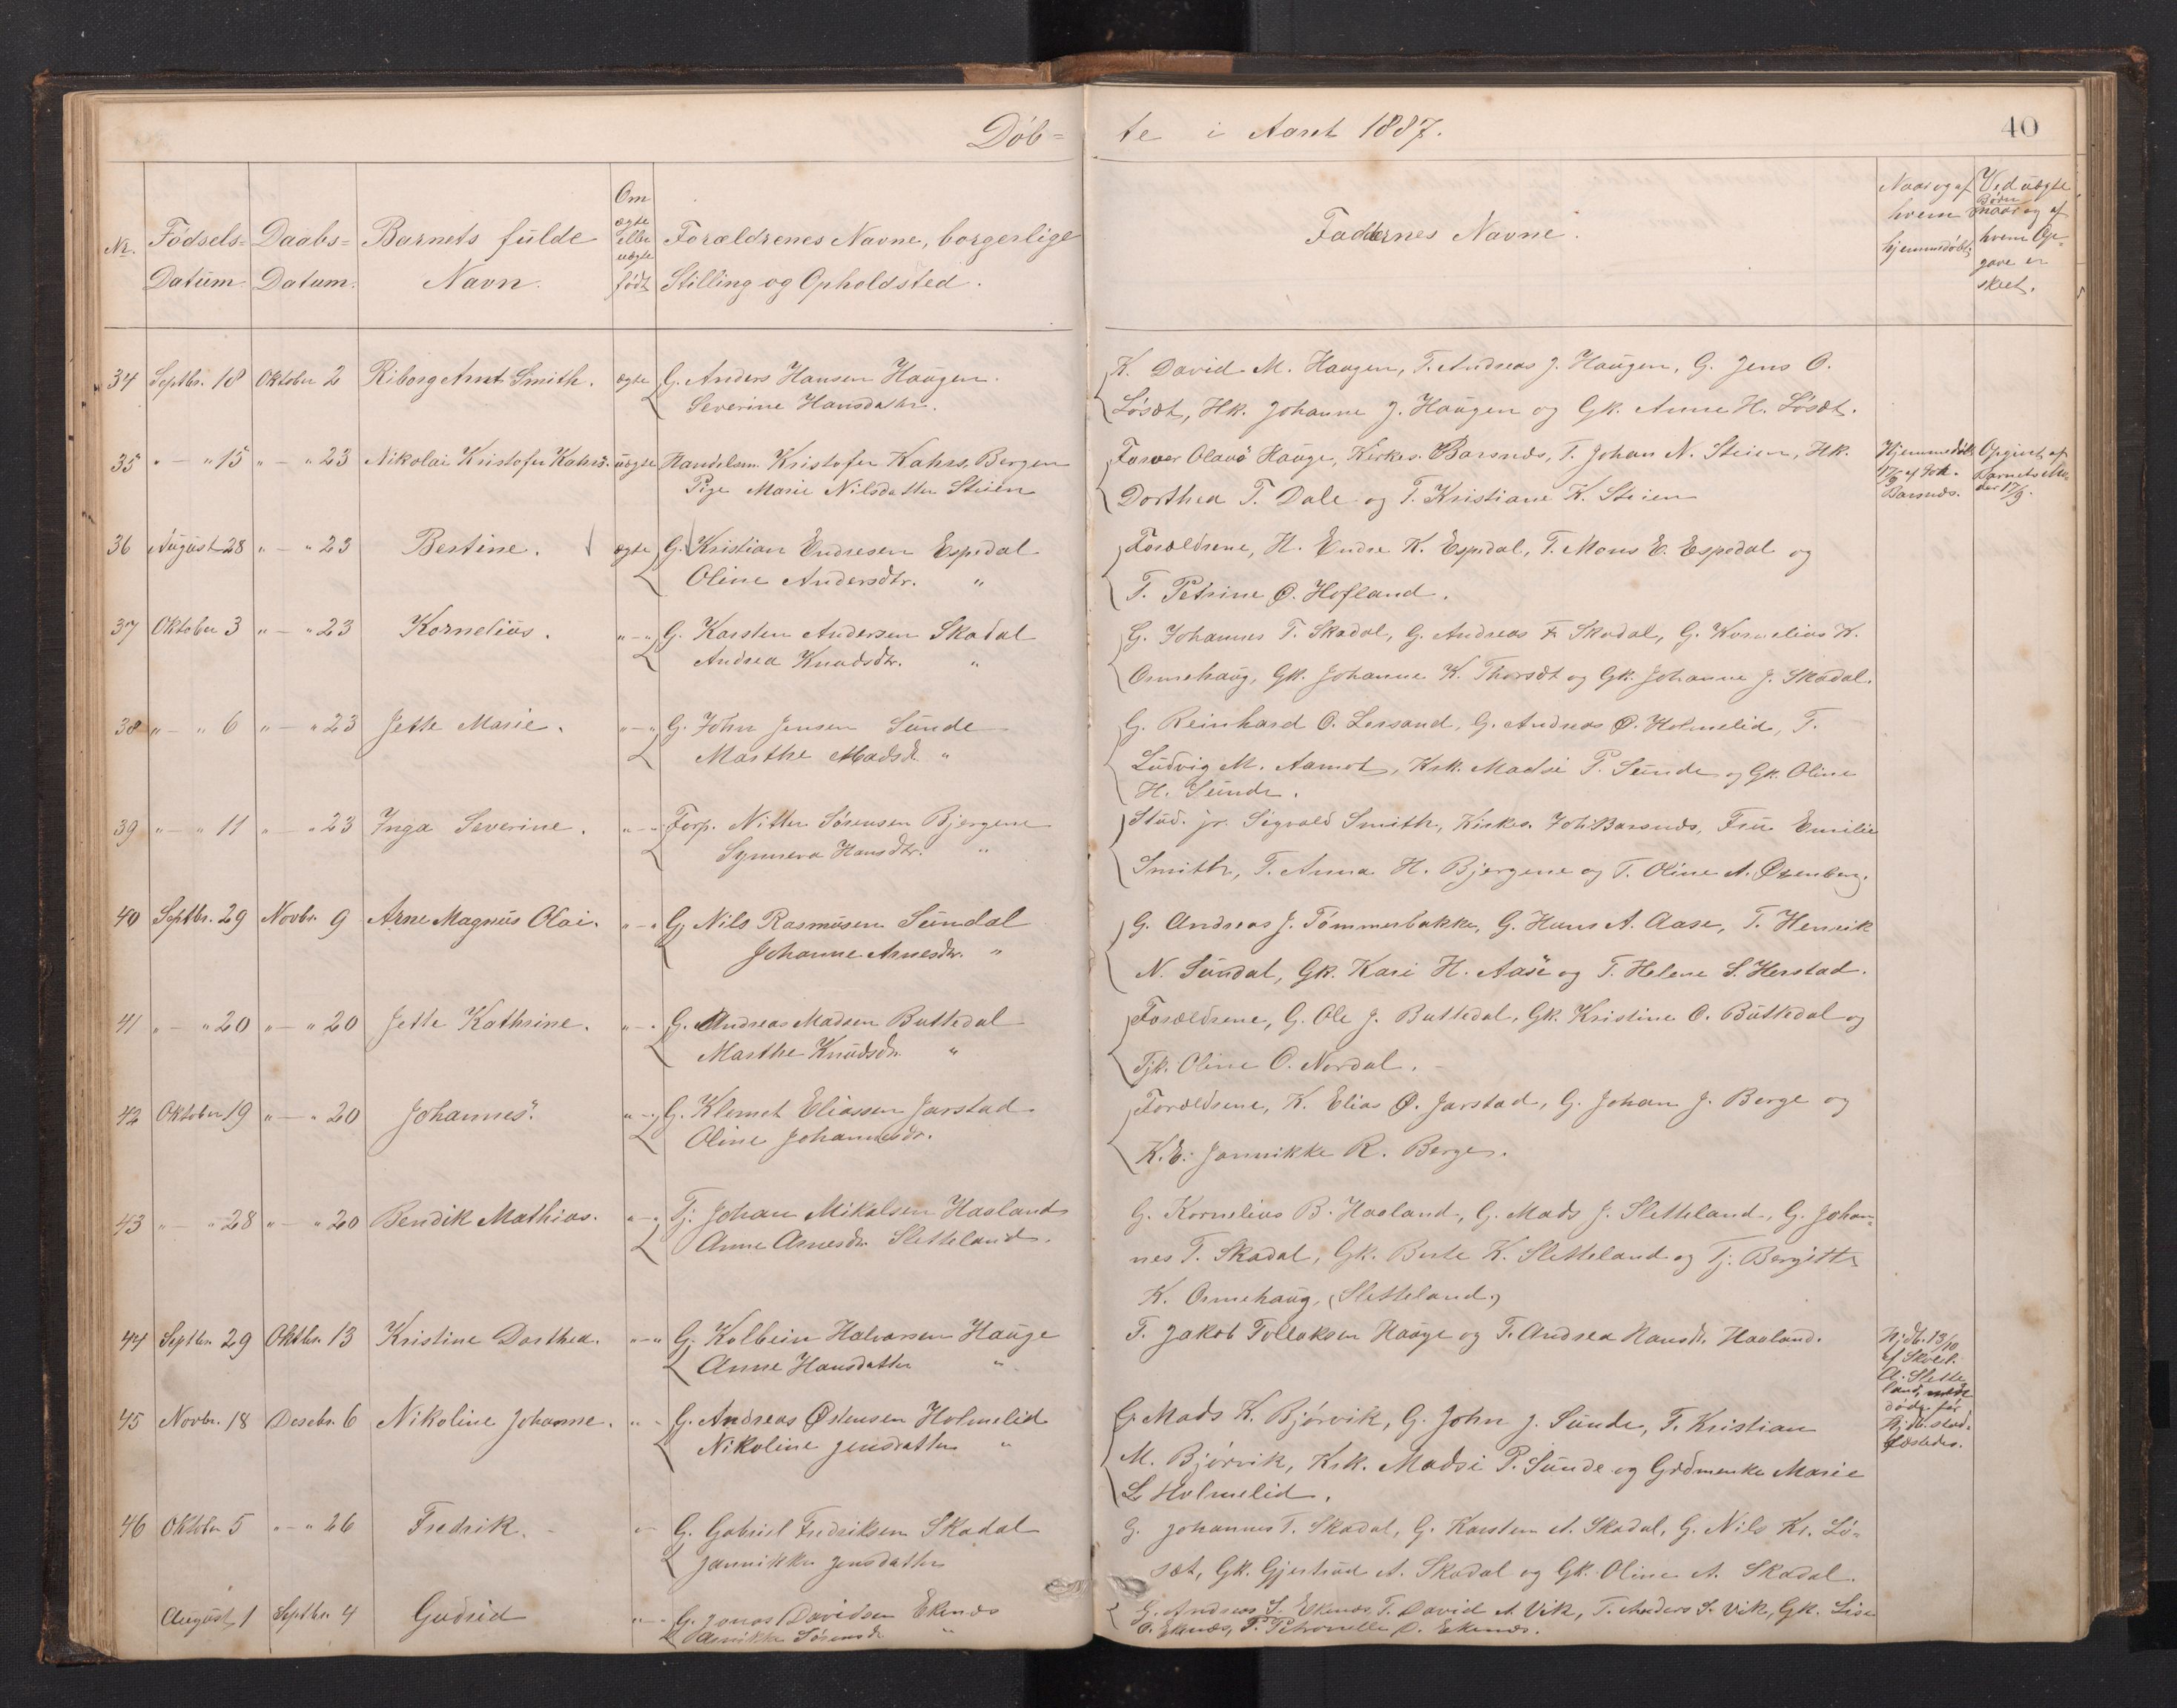 Döb=te i Aaret 1887.
40
Nr. Födsels=Datum. Daabs=Datum. Barnets fulde Navn. Om ægte eller uægte født Forældrenes Navne, borgerlige Stilling og Opholdsted. Faddernes Navne. Naar og af hvem hjemmedöbt. Ved uægte Børn naar og af hvem Opgave er skeet.
34 Septbr. 18 Oktober 2 Riborg Smith. ægte G. Anders Hansen Haugen.
Severine Hansdatter.
K. David M. Haugen, T. Andreas J. Haugen, G. Jens O.
Lösæt, Hk. Johanne J. Haugen og Gk. Anne H. Lösæt.
35 " — " 15 " — " 23 Nikolai Kristofer Kahrs. uægte Handelsm. Kristofer Kahrs, Bergen
Pige Marie Nilsdatter Steien
Farver Olavs Hauge, Kirkes. Barsnes, T. Johan N. Steien, Hk.
Dorthea T. Dale og T. Kristiane K. Steien
Hjemmedöbt
17/9 af Joh.
Barsnes.
Opgivet af
Barnets Mo-
der 17/9.
36 August 28 " — " 23 Bertine. ægte G. Kristian Endresen Espedal
Oline Andersdtr. "
Forældrene, H. Endre K. Espedal, T. Mons E. Espedal og
T. Petrine O. Hofland.
37 Oktober 3 " — " 23 Kornelius. " — " G. Karsten Andersen Skadal
Andrea Knudsdtr. "
G. Johannes T. Skadal, G. Andreas F. Skadal, G. Kornelius K.
Ormehaug, Gk. Johanne K. Thorsæt og Gk. Johanne J. Skadal.
38 " — " 6 " — " 23 Jette Marie. " — " G. John Jensen Sunde
Marthe Madsdtr. "
G. Reinhard O. Lersand, G. Andreas Ø. Holmelid, T.
Ludvig M. Aamot, Ksk. Madsi P. Sunde og Gk. Oline
H. Sunde.
39 " — " 11 " — " 23 Inga Severine. " — " Forp. Nitter Sörensen Bjergene
Synneva Hansdtr. "
Stud. jr. Sigvald Smith, Kirkes. Joh. Barsnes, Fru Emilie
Smith, T. Anna H. Bjergene og T. Oline A. Öxenberg.
40 Septbr. 29 Novbr. 9 Arne Magnus Olai. " — " G. Nils Rasmusen Sundal
Johanne Arnesdtr. "
G. Andreas J. Tömmerbakke, G. Hans A. Aase, T. Henrik
N. Sundal, Gk. Kari H. Aase og T. Helene S. Herstad.
41 " — " 20 " — " 20 Jette Kathrine. " — " G. Andreas Madsen Buttedal
Marthe Knudsdtr. "
Forældrene, G. Ole J. Buttedal, Gk. Kristine O. Buttedal og
Tjk. Oline O. Nordal.
42 Oktober 19 " — " 20 Johannes. " — " G. Klemet Eliassen Jarstad
Oline Johannesdr.
Forældrene, K. Elias Ø. Jarstad, G. Johan J. Berge og
K.E. Jannikke R. Berge.
43 " — " 28 " — " 20 Bendik Mathias. " — " Tj. Johan Mikalsen Haaland
Anne Arnesdr. Sletteland.
G. Kornelius B. Haaland, G. Mads J. Sletteland, G. Johan-
nes T. Skadal, Gk. Berte K. Sletteland og Tj. Bergitte
K. Ormehaug, (Sletteland.)
44 Septbr. 29 Oktbr. 13 Kristine Dorthea. " — " G. Kolbein Halvorsen Hauge
Anne Hansdatter "
T. Jakob Tollaksen Hauge og T. Andrea Hansdr. Haaland.
Hjdb. 13/10
af Skoel.
A. Slette
land,
döde før
Hjdb. stad-
fæstedes.
45 Novbr. 18 Desebr. 6 Nikoline Johanne. " — G. Andreas Østensen Holmelid
Nikoline Jensdatter "
G. Mads K. Björvik, G. John J. Sunde, T. Kristian
M. Björvik, Ksk. Madsi P. Sunde og Grdmenke Marie
L. Holmelid.
46 Oktober 5 " — " 26 Fredrik. " — G. Gabriel Fredriksen Skadal
Jannikke Jensdatter
G. Johannes T. Skadal, G. Karsten A. Skadal, G. Nils Kr. Lö-
sæt, Gk. Gjertrud A. Skadal og Gk. Oline A. Skadal.
August 1 Septbr. 4 Gudrid " — " G. Jonas Davidsen Ekenæs
Sörensdr. "
G. Andreas S. Ekenæs, T. David A. Vik, T. Anders S. Vik, Gk. Lise
O. Ekenæs, P. Petronelle D. Ekenæs.